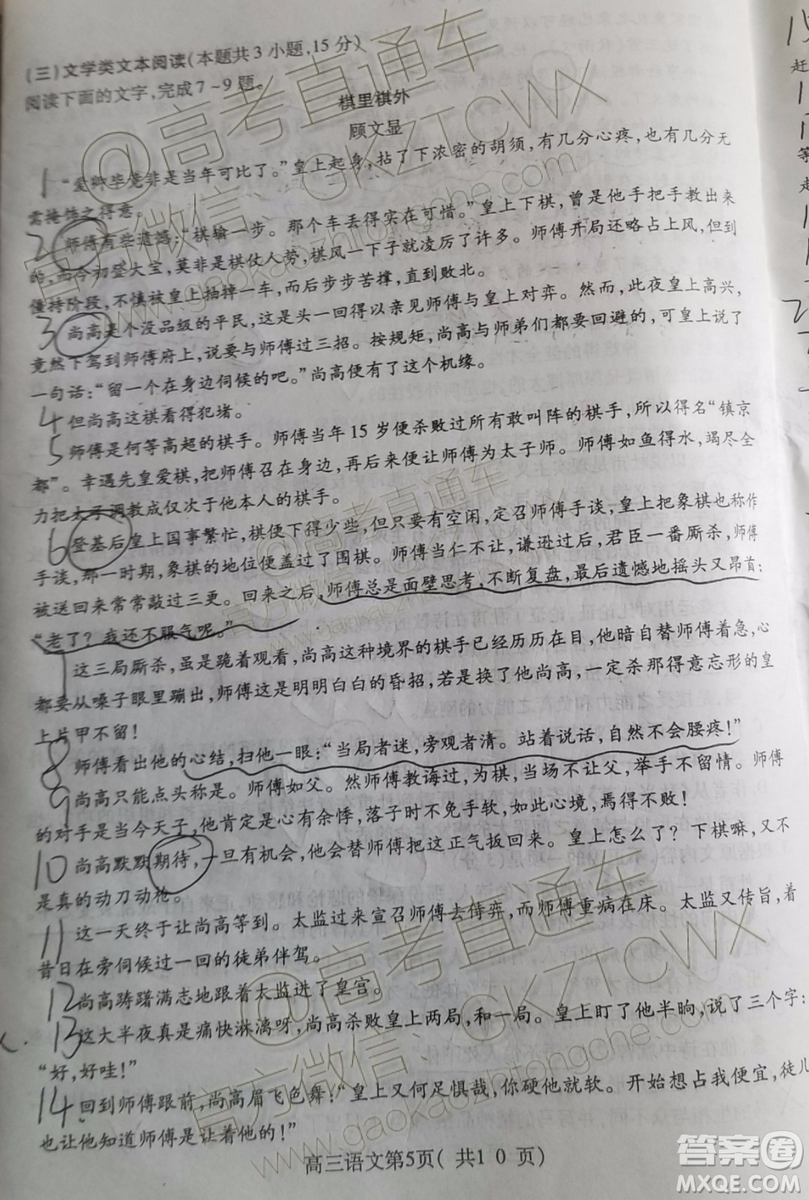 (三)文学类文本阅读(本题共3小题,15分)
阅读下面的文字,完成7~9题。
棋里棋外
顾文显
1 “爱卿毕竟非是当年可比了。”皇上起身,拈了下浓密的胡须,有几分心疼,也有几分无
需掩饰之得意。
2 师傅有些遗憾:“棋输一步。那个车丢得实在可惜。”皇上下棋,曾是他手把手教出来
的,而今初登大宝,莫非是棋仗人势,棋风一下子就凌厉了许多。师傅开局还略占上风,但到
僵持阶段,不慎被皇上抽掉一车,而后步步苦撑,直到败北。
3 尚高是个没品级的平民,这是头一回得以亲见师傅与皇上对弈。然而,此夜皇上高兴,
竟然下驾到师傅府上,说要与师傅过三招。按规矩,尚高与师弟们都要回避的,可皇上说了
一句话:“留一个在身边伺候的吧。”尚高才有了这个机缘。
4 但尚高这棋看得犯堵。
5 师傅是何等高超的棋手。师傅当年15岁便杀败过所有敢叫阵的棋手,所以得名“镇京
都”。幸遇先皇爱棋,把师傅召在身边,再后来便让师傅为太子师。师傅如鱼得水,竭尽全
力把太子调教成仅次于他本人的棋手。
6 登基后皇上国事繁忙,棋便下得少些,但只要有空闲,定召师傅手谈,皇上把象棋也称作
手谈,那一时期,象棋的地位便盖过了围棋。师傅当仁不让,谦逊过后,君臣一番厮杀,师傅
被送回来常常敲过三更。回来之后,师傅总是面壁思考,不断复盘,最后遗憾地摇头又昂首:
“老了?我还不服气呢。”
7 这三局厮杀,虽是跪着观看,尚高这种境界的棋手已经历历在目,他暗自替师傅着急,心
都要从嗓子眼里蹦出,师傅这是明明白白的昏招,若是换了他尚高,一定杀那得意忘形的皇
上片甲不留!
8 师傅看出他的心结,扫他一眼:“当局者迷,旁观者清。站着说话,自然不会腰疼!”
9 尚高只能点头称是。师傅如父。然师傅教诲过,为棋,当场不让父,举手不留情。师傅
的对手是当今天子,他肯定是心有余悸,落子时不免手软,如此心境,焉得不败!
10 尚高默默期待,一旦有机会,他会替师傅把这正气扳回来。皇上怎么了?下棋嘛,又不
是真的动刀动枪。
11 这一天终于让尚高等到。太监过来宣召师傅去侍弈,而师傅重病在床。太监又传旨,着
昔日在旁伺候过一回的徒弟伴驾。
12 尚高踌躇满志地跟着太监进了皇宫。
13 这大半夜真是痛快淋漓呀,尚高杀败皇上两局,和一局。皇上盯了他半晌,说了三个字:
“好,好哇!”
14 回到师傅跟前,尚高眉飞色舞:“皇上又何足惧哉,你硬他就软。开始想占我便宜,徒儿
也让他知道师傅是让着他的!”
高三语文第5页( 共1 0 页)
@高考直通车
官方微信:GKZTCWX
www.gaokaozhitongche.com
答案圈
MXQE.COM